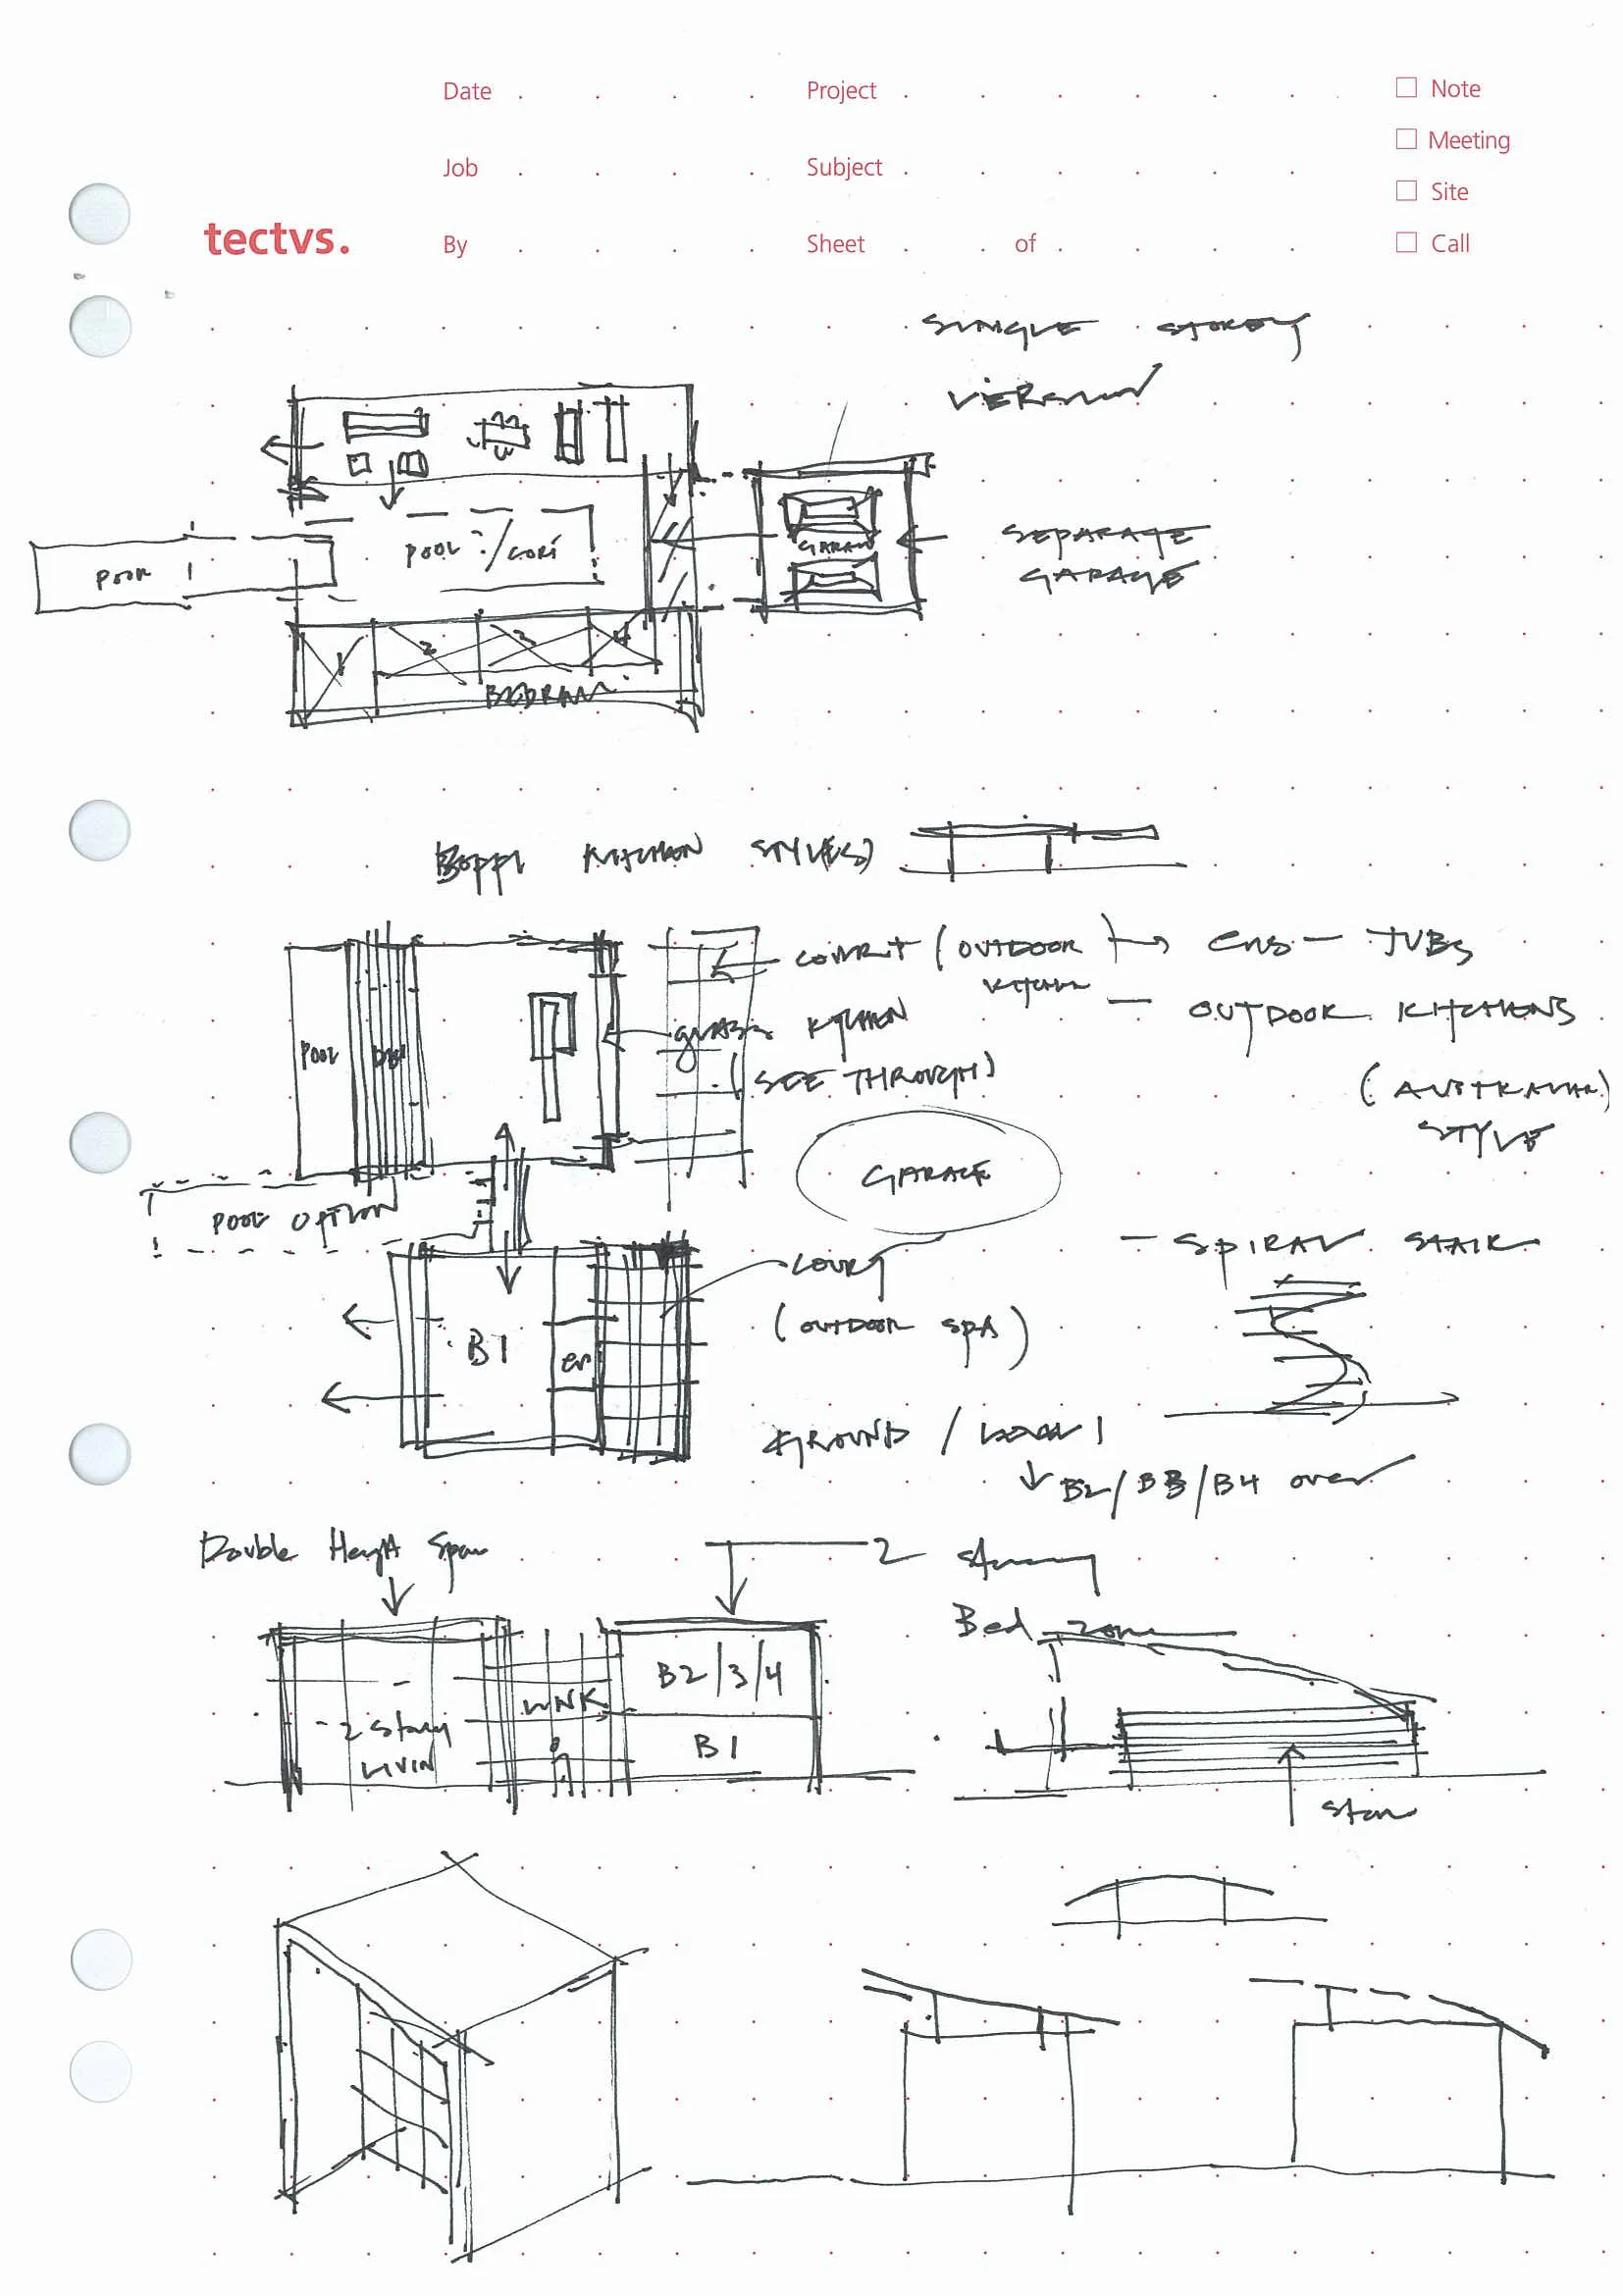 Date Project Note
Meeting
Job Subject Site
tectvs. By Sheet of Call
SINGLE STOREY
VERSION
POOL /
POOL 1
GARAGE
SEPARATE
GARAGE
1 2 3 4
BEDROOM
KITCHEN STYLE(S)
COURT (OUTDOOR
KITCHEN
) → ENS — TUBS
— OUTDOOR KITCHENS
(AUSTRALIAN)
STYLE
POOL
GLASS KITCHEN
(SEE THROUGH)
GARAGE
POOL OPTION
COURT
(OUTDOOR SPA)
- SPIRAL STAIR
B1
GROUND / LEVEL 1
↓ B2/B3/B4 over
Double Height Space
2 Storey
Bed Zone
- 2 Storey
LIVIN
LINK
B2/3/4
B1
Stair